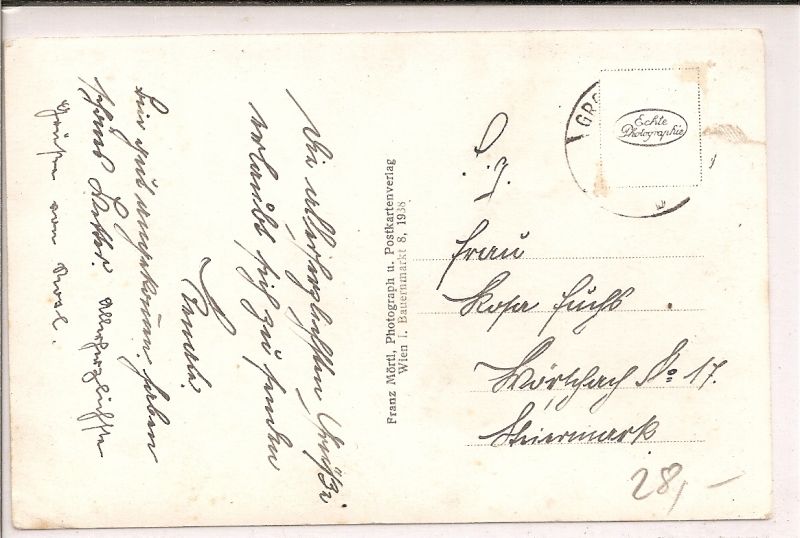 Die allerherzlichsten Grüße
erlaubt sich zu senden
Sind gut angekommen. haben
schönes Wetter. Allerherzlichste
Grüße von
Franz Mörtl, Photograph u. Postkartenverlag
Wien I. Bauernmarkt 8, 1938
GRO
Echte
Photographie
Frau
Rosa Fuchs
Wörschach No 17.
Steiermark
28,-